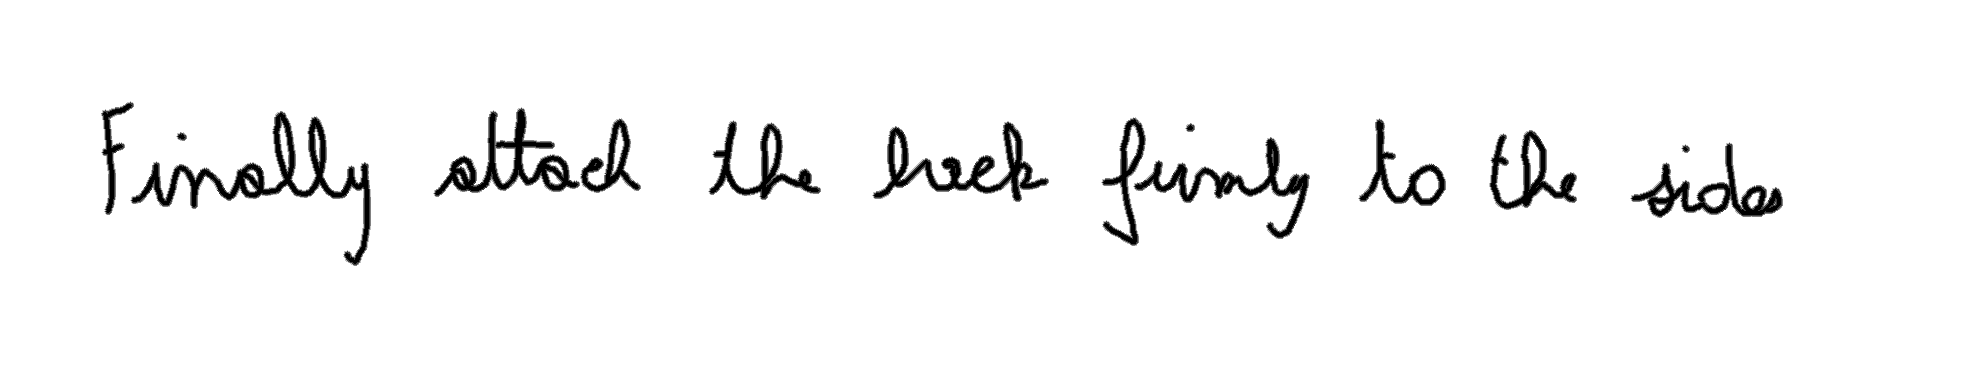 Finally attach the back firmly to the sides